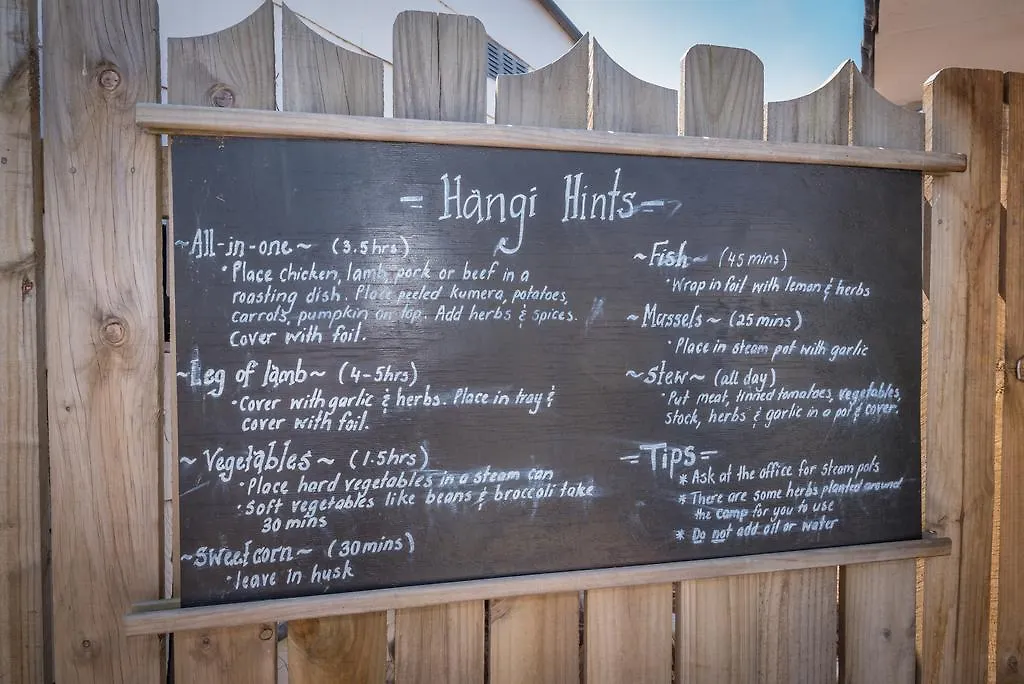 = Hāngi Hints =
~All-in-one~ (3.5hrs)
• Place chicken, lamb, pork or beef in a
roasting dish. Place peeled kumera, potatoes,
carrots, pumpkin on top. Add herbs & spices.
Cover with foil.
~Leg of lamb~ (4-5hrs)
• Cover with garlic & herbs. Place in tray &
cover with foil.
~Vegetables~ (1.5hrs)
• Place hard vegetables in a steam can
• Soft vegetables like beans & broccoli take
30 mins
~Sweetcorn~ (30mins)
• leave in husk
~Fish~ (45mins)
• Wrap in foil with lemon & herbs
~Mussels~ (25mins)
• Place in steam pot with garlic
~Stew~ (all day)
• Put meat, tinned tomatoes, vegetables,
stock, herbs & garlic in a pot & cover.
=Tips=
* Ask at the office for steam pots
* There are some herbs planted around
the camp for you to use
* Do not add oil or water